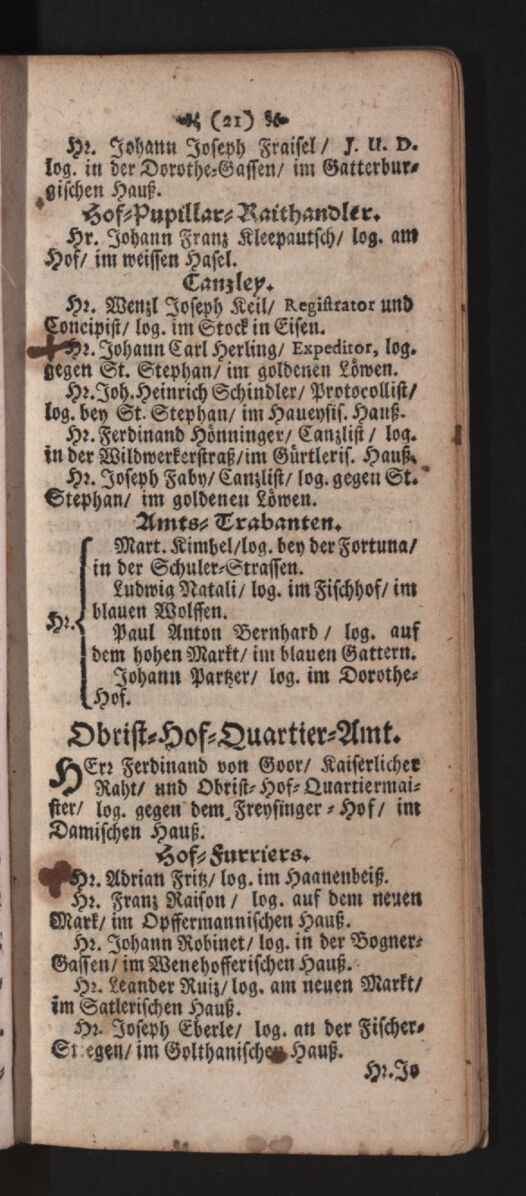 (21)
Hr. Johann Joseph Fraisel/ J. U. D.
log. in der Dorothe-Gassen/ im Gatterbur-
gischen Hauß.
Hof-Pupillar-Raithandler.
Hr. Johann Franz Kleepautsch/ log. am
Hof/ im weissen Hasel.
Canzley.
Hr. Wenzl Joseph Keil/ Registrator und
Concipist/ log. im Stock in Eisen.
Hr. Johann Carl Herling/ Expeditor, log.
gegen St. Stephan/ im goldenen Löwen.
Hr. Joh. Heinrich Schindler/ Protocollist/
log. bey St. Stephan/ im Haueysis. Hauß.
Hr. Ferdinand Hönninger/ Canzlist/ log.
in der Wildwerkerstraß/ im Gürtleris. Hauß.
Hr. Joseph Faby/ Canzlist/ log. gegen St.
Stephan/ im goldenen Löwen.
Amts-Trabanten.
Mart. Kimbel/ log. bey der Fortuna/
in der Schuler-Strassen.
Ludwig Natali/ log. im Fischhof/ im
Hr. blauen Wolffen.
Paul Anton Bernhard/ log. auf
dem hohen Markt/ im blauen Gattern.
Johann Partzer/ log. im Dorothe-
Hof.
Obrist-Hof-Quartier-Amt.
HErr Ferdinand von Goor/ Kaiserlicher
Raht/ und Obrist-Hof-Quartiermai-
ster/ log. gegen dem Freysinger-Hof/ im
Damischen Hauß.
Hof-Furriers.
Hr. Adrian Fritz/ log. im Haanenbeiß.
Hr. Franz Raison/ log. auf dem neuen
Mark/ im Opffermannischen Hauß.
Hr. Johann Robinet/ log. in der Bogner-
Gassen/ im Wenehofferischen Hauß.
Hr. Leander Ruiz/ log. am neuen Markt/
im Satlerischen Hauß.
Hr. Joseph Eberle/ log. an der Fischer-
Stiegen/ im Golthanischen Hauß.
Hr. Jo